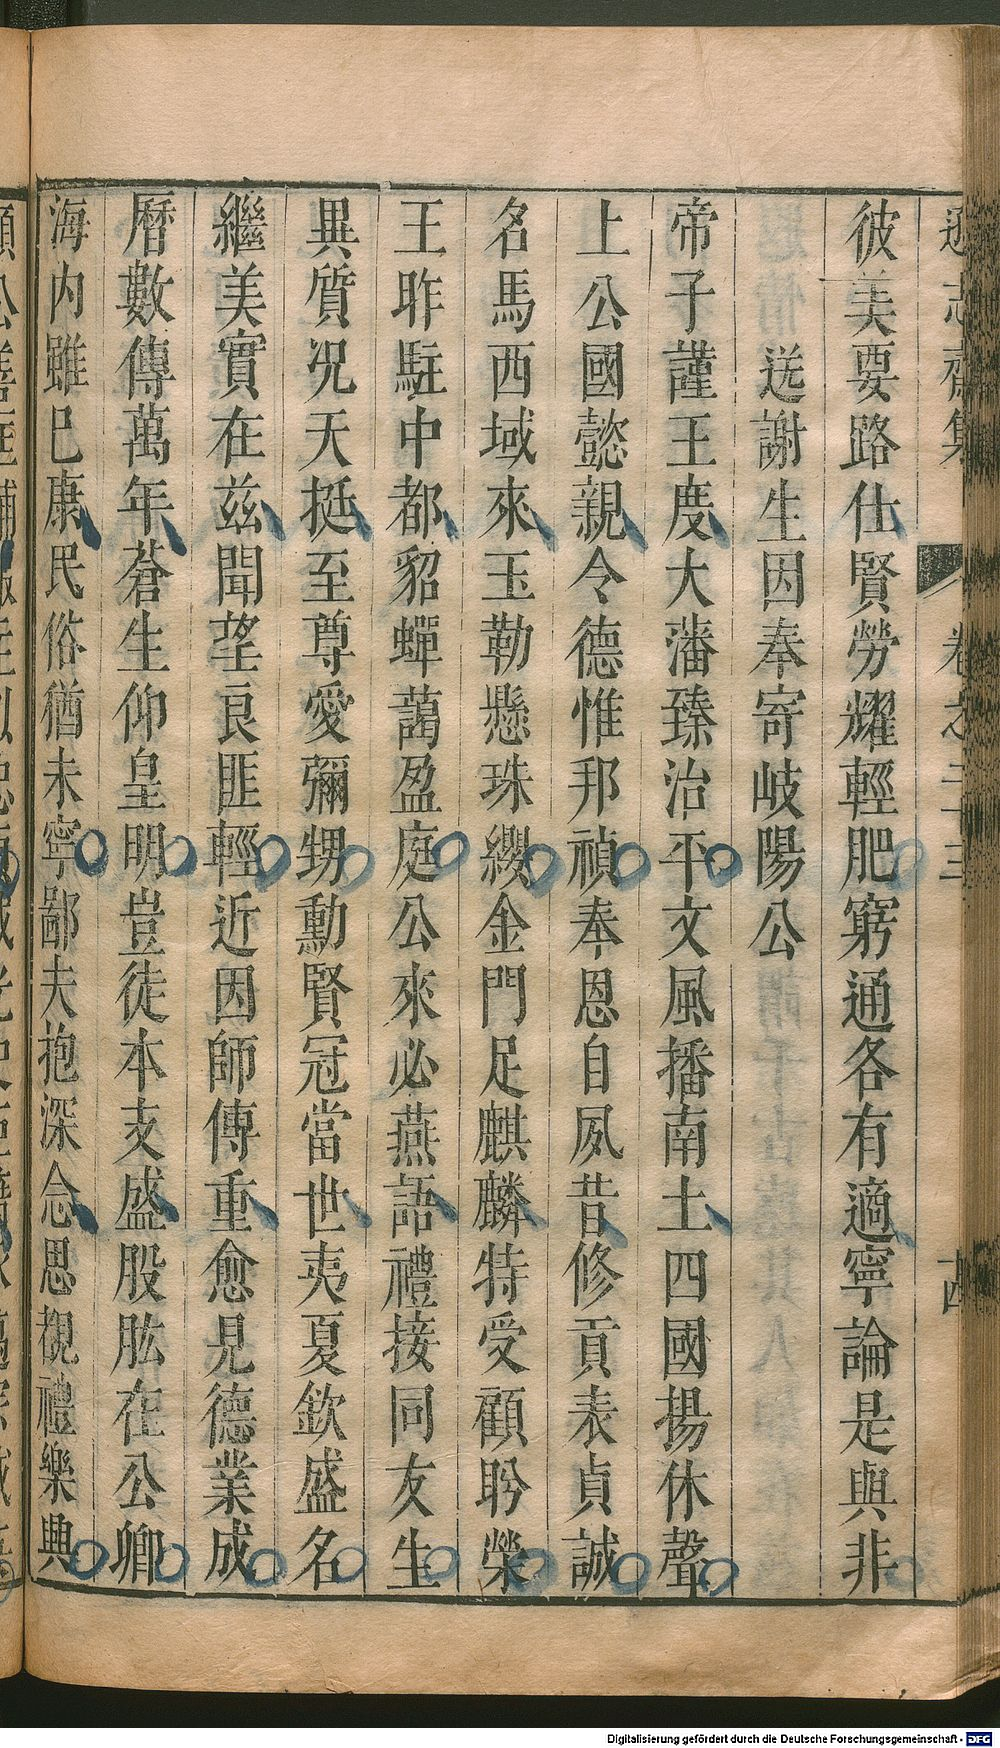 遜志齋集 卷之二十三 十四
彼美要路仕賢勞耀輕肥窮通各有適寧論是與非
送謝生因奉寄岐陽公
帝子謹王度大藩臻治平文風播南土四國揚休聲
上公國懿親令德惟邦禎奉恩自夙昔修貢表貞誠
名馬西域來玉勒懸珠纓金門足麒麟特受顧盻榮
王昨駐中都貂蟬藹盈庭公來必燕語禮接同友生
異質況天挺至尊愛彌甥勳賢冠當世夷夏欽盛名
繼美實在茲聞望良匪輕近因師傳重愈見德業成
曆數傳萬年蒼生仰皇明豈徒本支盛股肱在公卿
海內雖已康民俗猶未寧鄙夫抱深念思覩禮樂興
Digitalisierung gefördert durch die Deutsche Forschungsgemeinschaft - DFG